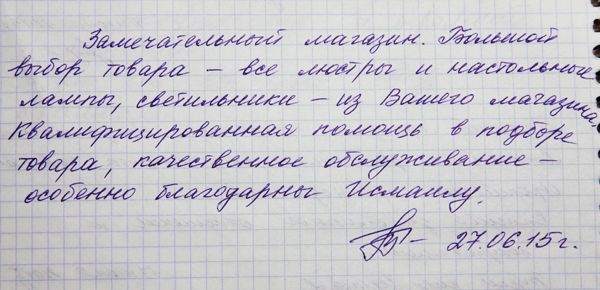 Замечательный магазин. Большой
выбор товара – все люстры и настольные
лампы, светильники – из Вашего магазина.
Квалифицированная помощь в подборе
товара, качественное обслуживание –
особенно благодарны Исмаилу.
27.06.15г.